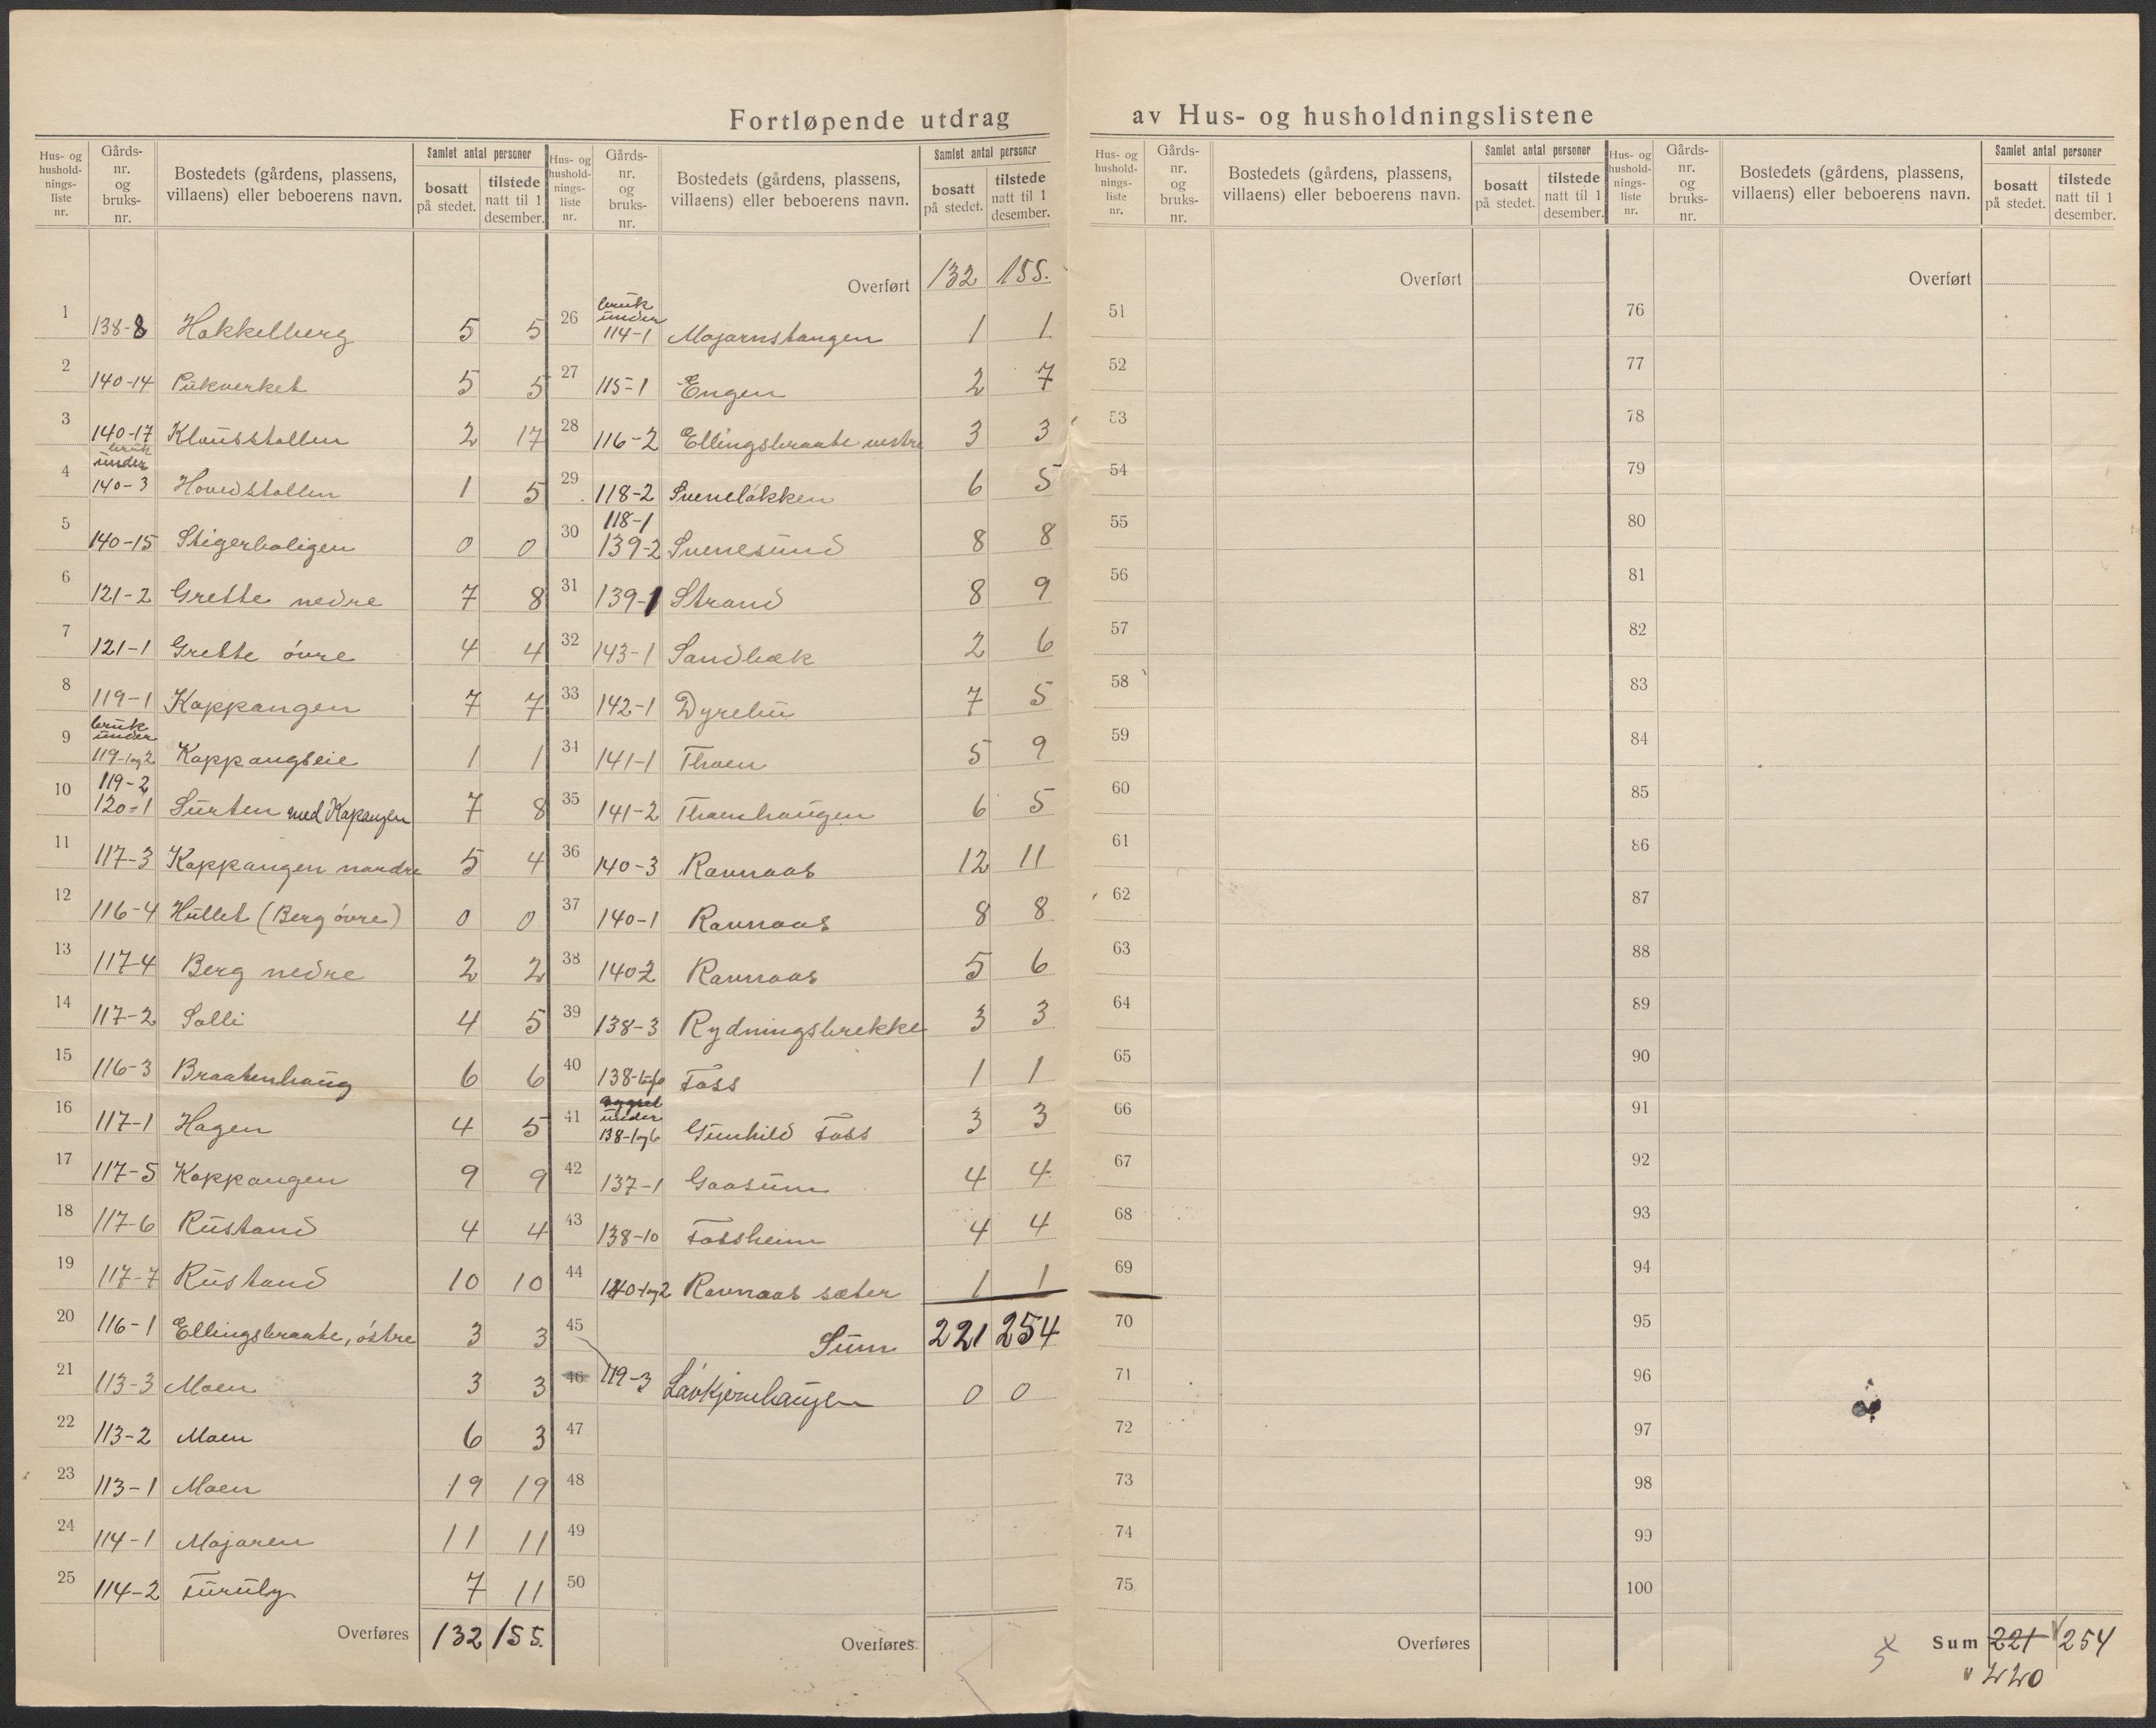 Fortløpende utdrag av Hus- og husholdningslistene
Hus- og husholdnings-liste nr. | Gårds-nr. og bruks-nr. | Bostedets (gårdens, plassens, villaens) eller beboerens navn. | Samlet antal personer | bosatt på stedet. | tilstede natt til 1 desember.
1 138-8 Hakkelberg 5 5
2 140-14 Pukverket 5 5
3 140-17 Klausstollen 2 17
4 bruk under 140-3 Hovedstollen 1 5
5 140-15 Stigerboligen 0 0
6 121-2 Grette nedre 7 8
7 121-1 Grette óvre 4 4
8 119-1 Kappangen 7 7
9 bruk under 119-1og2 Kappangseie 1 1
10 119-2 120-1 Surten med Kapangen 7 8
11 117-3 Kappangen nordre 5 4
12 116-4 Hullet (Berg óvre) 0 0
13 117-4 Berg nedre 2 2
14 117-2 Solli 4 5
15 116-3 Braatenhaug 6 6
16 117-1 Hagen 4 5
17 117-5 Kappangen 9 9
18 117-6 Rustand 4 4
19 117-7 Rustand 10 10
20 116-1 Ellingsbraate, óstre 3 3
21 113-3 Moen 3 3
22 113-2 Moen 6 3
23 113-1 Moen 19 19
24 114-1 Majaren 11 11
25 114-2 Furuly 7 11
Overføres 132 155.
Hus- og husholdnings-liste nr. | Gårds-nr. og bruks-nr. | Bostedets (gårdens, plassens, villaens) eller beboerens navn. | Samlet antal personer | bosatt på stedet. | tilstede natt til 1 desember.
Overført 132 155.
26 bruk under 114-1 Majarnstangen 1 1
27 115-1 Engen 2 7
28 116-2 Ellingsbraate vestre 3 3
29 118-2 Svenelókken 6 5
30 118-1 139-2 Svenesund 8 8
31 139-1 Strand 8 9
32 143-1 Sandbæk 2 6
33 142-1 Dyrebu 7 5
34 141-1 Thoen 5 9
35 141-2 Thoenhaugen 6 5
36 140-3 Ravnaas 12 11
37 140-1 Ravnaas 8 8
38 140-2 Ravnaas 5 6
39 138-3 Rydningsbrekke 3 3
40 138-1og6 Foss 1 1
41 under 138-1og6 Gunhild Foss 3 3
42 137-1 Gaasum 4 4
43 138-10 Fossheim 4 4
44 140-1og2 Ravnaas sæter 1 1
45 Sum 221 254
46 119-3 Lavkjernhaugen 0 0
47
48
49
50
Overføres.
Hus- og husholdnings-liste nr. | Gårds-nr. og bruks-nr. | Bostedets (gårdens, plassens, villaens) eller beboerens navn. | Samlet antal personer | bosatt på stedet. | tilstede natt til 1 desember.
Overført
51
52
53
54
55
56
57
58
59
60
61
62
63
64
65
66
67
68
69
70
71
72
73
74
75
Overføres
Hus- og husholdnings-liste nr. | Gårds-nr. og bruks-nr. | Bostedets (gårdens, plassens, villaens) eller beboerens navn. | Samlet antal personer | bosatt på stedet. | tilstede natt til 1 desember.
Overført
76
77
78
79
80
81
82
83
84
85
86
87
88
89
90
91
92
93
94
95
96
97
98
99
100
Sum 221 254
220